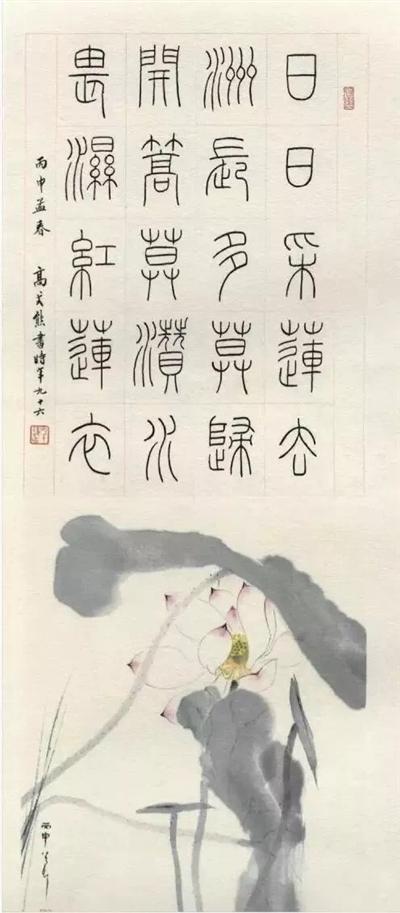 日日采蓮去
洲長多莫歸
開篙莫灒水
畏濕紅蓮衣
丙申孟春 高式熊書時年九十六
丙申